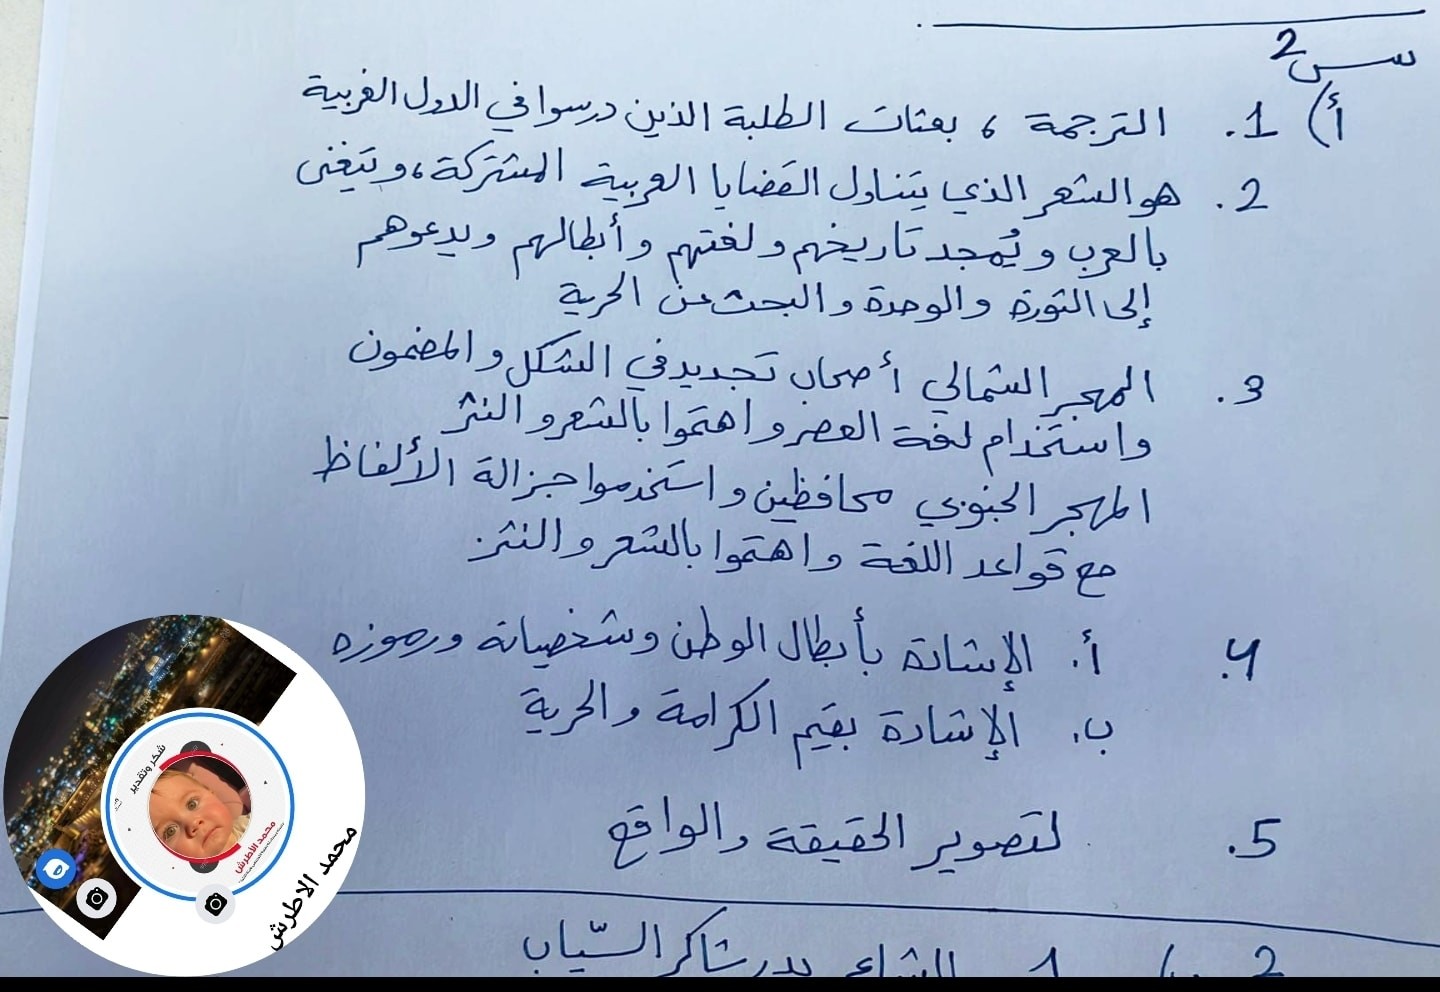 س2
أ) 1. الترجمة ، بعثات الطلبة الذين درسوا في الدول الغربية
2. هو الشعر الذي يتناول القضايا العربية المشتركة ، ويتغنى
بالعرب ويُمجد تاريخهم ولغتهم وأبطالهم ويدعوهم
إلى الثورة والوحدة والبحث عن الحرية
3. المهجر الشمالي أصحاب تجديد في الشكل والمضمون
واستخدام لغة العصر واهتموا بالشعر والنثر
المهجر الجنوبي محافظين واستخدموا جزالة الألفاظ
مع قواعد اللغة واهتموا بالشعر والنثر.
4. أ. الإشادة بأبطال الوطن وشخصياته ورموزه
ب. الإشادة بقيم الكرامة والحرية
5. لتصوير الحقيقة والواقع
2 ب) 1 الشاعر بدر شاكر السيّاب
شكر وتقدير
محمد الاطرش
محمد الاطرش